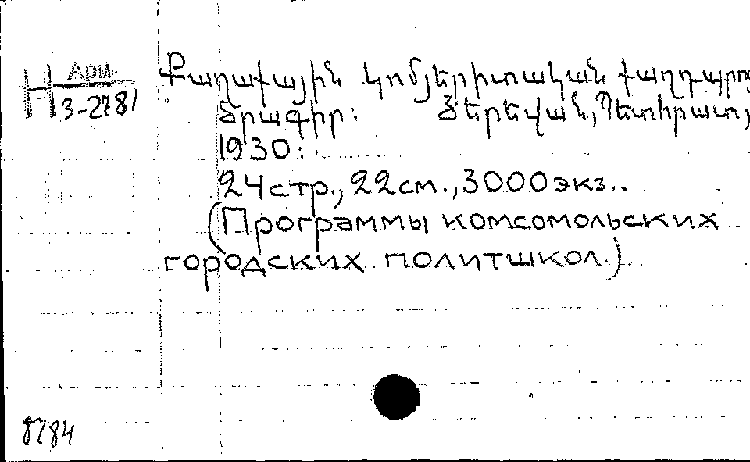 Н Арм. 3-2781
Քաղաքային կոմյերիտական քաղդպրո
ծրագիր: Յերեվան, Պետհրատ,
1930:
24 стр., 22 см., 3000 экз..
(Программы комсомольских
городских политшкол.)
8784